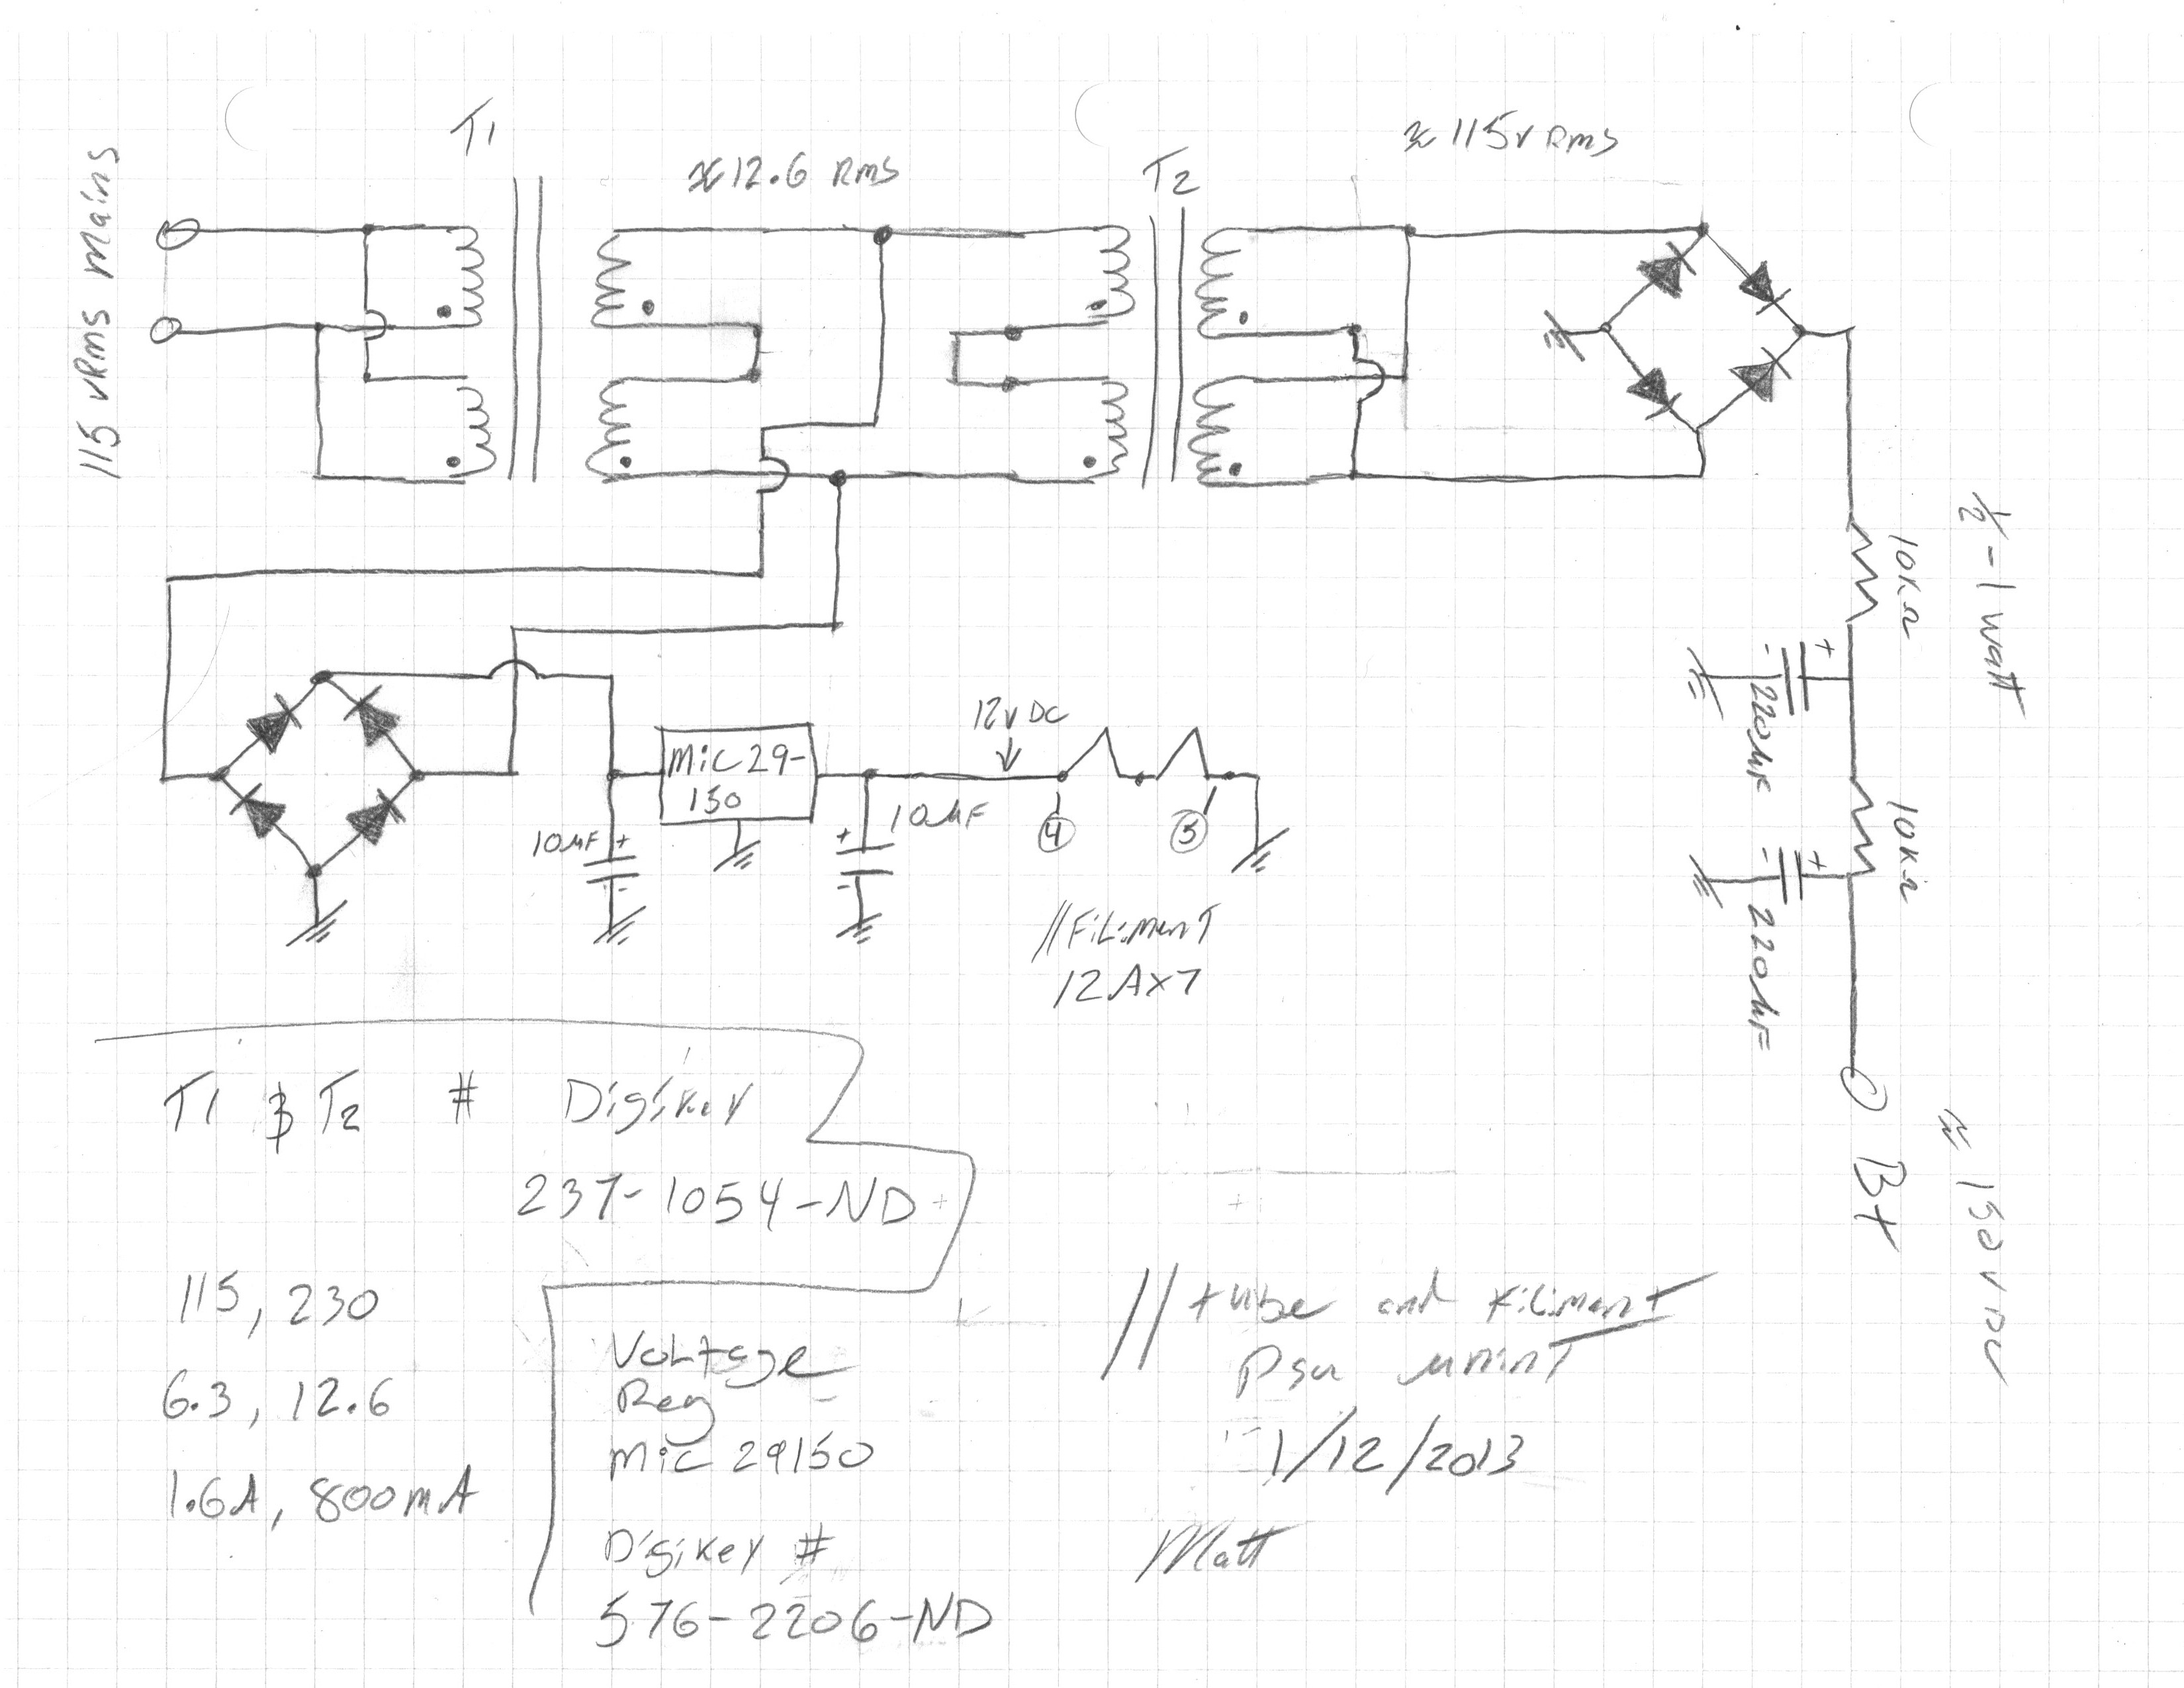 T1
≈12.6 RMS
T2
≈115V RMS
115 VRMS Mains
10KΩ
1/2 - 1 Watt
+
-
220µF
10KΩ
+
-
220µF
B+
12V DC
MiC29-
150
10µF
+
-
10µF
+
-
4
5
//FiLiment
12AX7
T1 & T2 # Digikey
237-1054-ND
115, 230
6.3, 12.6
1.6A, 800mA
Voltage
Reg
MiC 29150
Digikey #
576-2206-ND
// tube and Filiment
PSU
1/12/2013
Matt